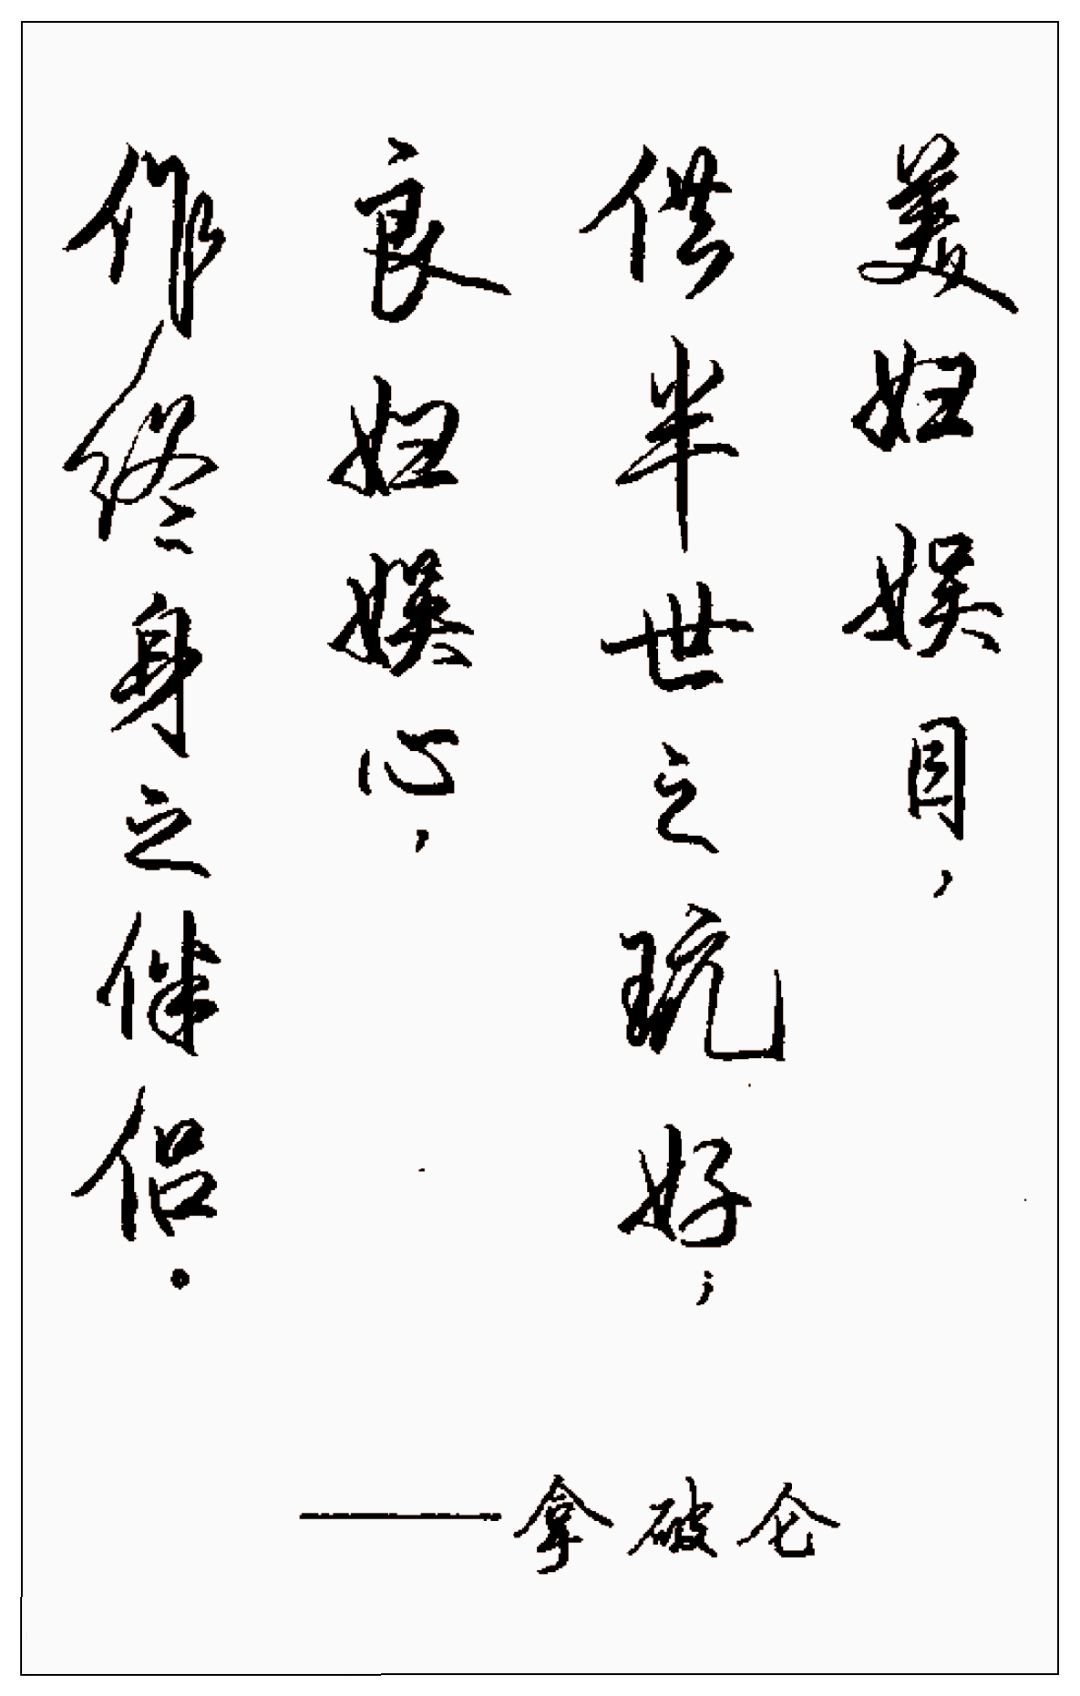 美妇娱目，
供半世之玩好；
良妇娱心，
作终身之伴侣。
——拿破仑